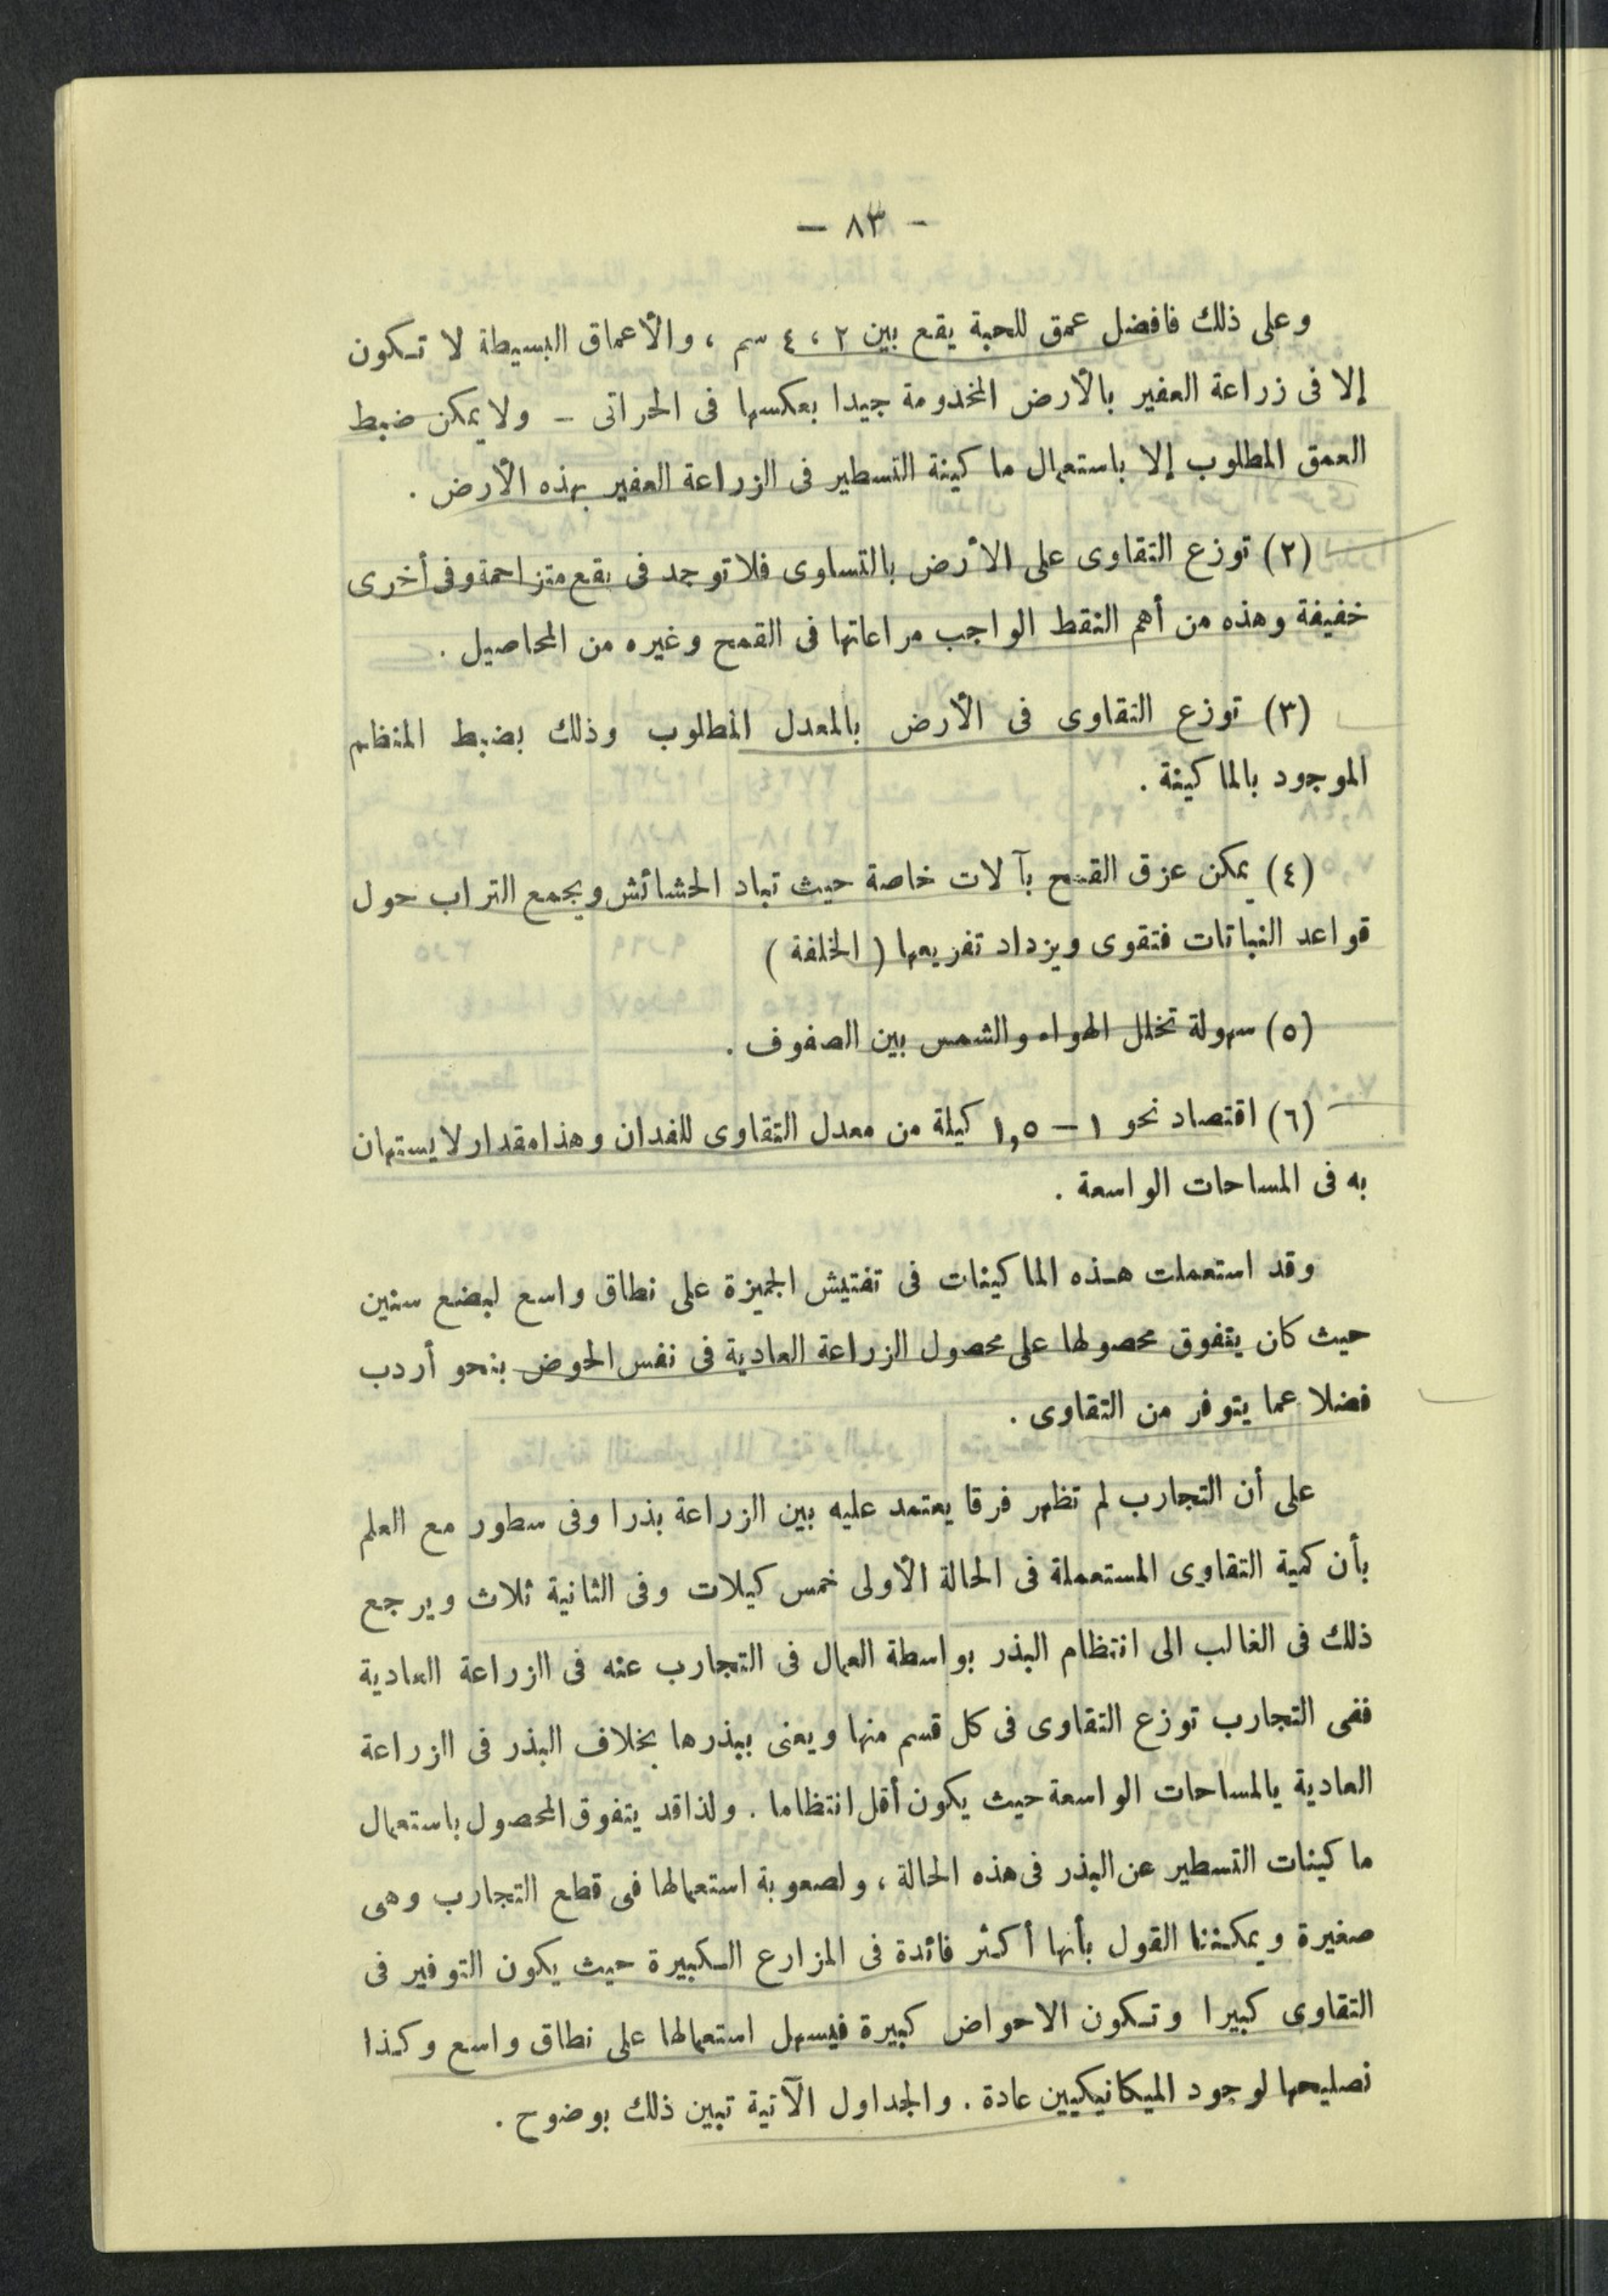 — ٨٣ —
وعلى ذلك فافضل عمق للحبة يقع بين ٢ ، ٤ سم ، والأعماق البسيطة لا تكون
إلا فى زراعة العفير بالأرض المخدومة جيدا بعكسها فى الحراتى — ولا يمكن ضبط
العمق المطلوب إلا باستعمال ماكينة التسطير فى الزراعة العفير بهذه الأرض .
(٢) توزع التقاوى على الأرض بالتساوى فلا توجد فى بقع متزاحمة وفى أخرى
خفيفة وهذه من أهم النقط الواجب مراعاتها فى القمح وغيره من المحاصيل .
(٣) توزع التقاوى فى الأرض بالمعدل المطلوب وذلك بضبط المنظم
الموجود بالماكينة .
(٤) يمكن عزق القمح بآلات خاصة حيث تباد الحشائش ويجمع التراب حول
قواعد النباتات فتقوى ويزداد تفريعها ( الخلفة )
(٥) سهولة تخلل الهواء والشمس بين الصفوف .
(٦) اقتصاد نحو ١ — ١,٥ كيلة من معدل التقاوى للفدان وهذا مقدار لا يستهان
به فى المساحات الواسعة .
وقد استعملت هذه الماكينات فى تفتيش الجميزة على نطاق واسع لبضع سنين
حيث كان يتفوق محصولها على محصول الزراعة العادية فى نفس الحوض بنحو أردب
فضلا عما يتوفر من التقاوى .
على أن التجارب لم تظهر فرقا يعتمد عليه بين الزراعة بذرا وفى سطور مع العلم
بأن كمية التقاوى المستعملة فى الحالة الأولى خمس كيلات وفى الثانية ثلاث ويرجع
ذلك فى الغالب الى انتظام البذر بواسطة العمال فى التجارب عنه فى الزراعة العادية
ففى التجارب توزع التقاوى فى كل قسم منها ويعنى ببذرها بخلاف البذر فى الزراعة
العادية يالمساحات الواسعة حيث يكون أقل انتظاما . ولذا قد يتفوق المحصول باستعمال
ماكينات التسطير عن البذر فى هذه الحالة ، ولصعوبة استعمالها فى قطع التجارب وهى
صغيرة ويمكننا القول بأنها أكثر فائدة فى المزارع الكبيرة حيث يكون التوفير فى
التقاوى كبيرا وتكون الاحواض كبيرة فيسهل استعمالها على نطاق واسع وكذا
تصليحها لوجود الميكانيكيين عادة . والجداول الآتية تبين ذلك بوضوح .